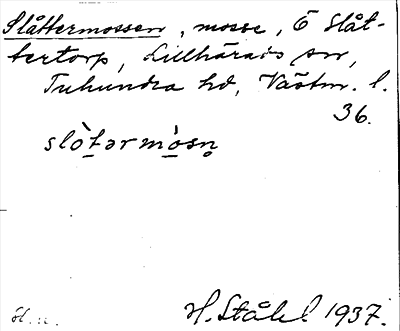 Slåttermossen, mosse, Ö Slåt-
tertorp, Lillhärads sn,
Tuhundra hd, Västm. l.
36.
slòtərmòsn̥
H. Ståhl 1937.